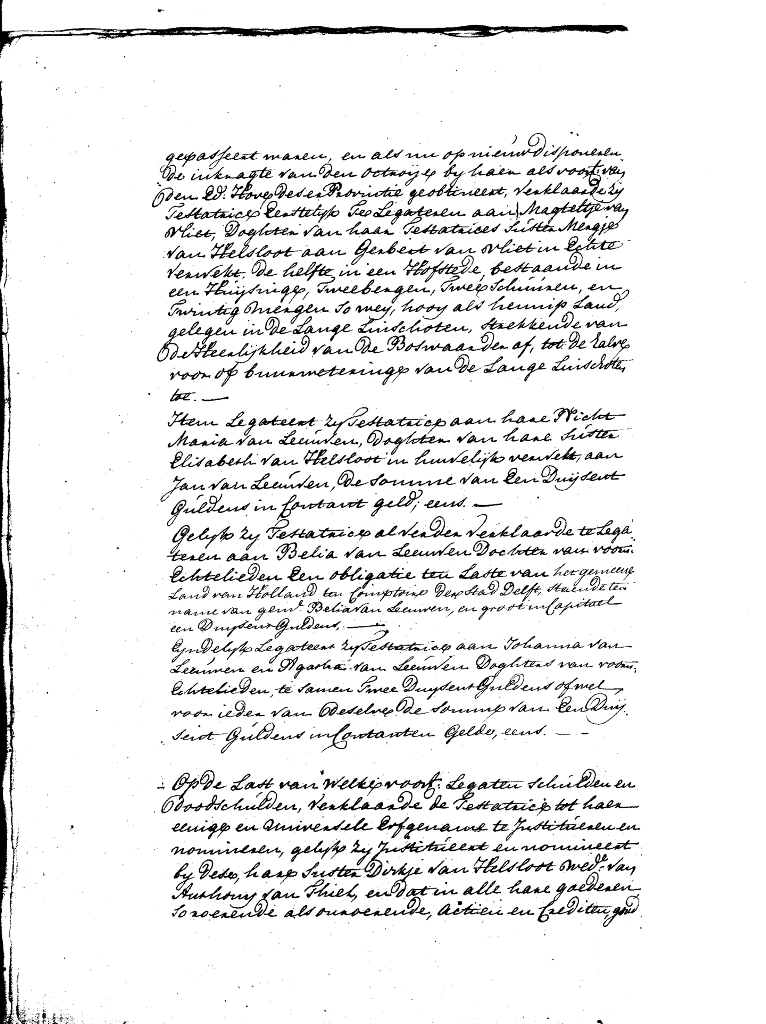 gepasseert waren, en als nu op nieuw disponeren
de inkragte van den octroije by haer als voort. van
den Ed: Hove deser Provintie geobtineert, verklaarde zy
Testatrice Eerstelijk Te Legateren aan Magteltje van
Vliet, Doghter van haar Testatrices Suster Merrigje
van Helsloot aan Gerbert van Vliet in Echte
verwekt, de helfte in een Hofstede, bestaande in
een Huysinge, Tweebergen, Twee Schuuren, en
Twintig mergen so wey, hooy als hennip Land,
gelegen in de Lange Linschoten, strekkende van
de Heerlijkheid van de Boswaarder af, tot de halve
voor of buurweteringe van de Lange Linschoten
toe. —
Item Legateert zy Testatrice aan hare Nicht
Maria van Leeuwen, Doghter van hare Suster
Elisabeth van Helsloot in huwelijk verwekt, aan
Jan van Leeuwen, de somme van Een Duysent
Guldens in Contant geld, eens. —
Gelijk zy Testatrice al verder verklaarde te Lega
teren aan Belia van Leeuwen Dochter van voorn:
Echtelieden Een obligatie ten Laste van het gemeene
Land van Holland ten Comptoire der Stad Delft, staende ten
name van gem: Belia van Leeuwen, en groot in Capitael
een Duysent Guldens, —
Eyndelijk Legateert zy Testatrice aan Johanna van
Leeuwen en Agatha van Leeuwen Doghters van voorn:
Echtelieden, te samen Twee Duysent Guldens of wel
voor ieder van deselve de somme van Een Duy
sent Guldens in Contanten Gelde, eens. — —
Op de Last van Welke voors: Legaten schulden en
doodschulden, verklaarde de Testatrice tot haer
eenige en universele Erfgename te Institueren en
nomineren, gelijk zy Institueert en nomineert
by dese, hare Suster Dirkje van Helsloot Wed: van
Anthony van Thiel, en dat in alle hare goederen
so roerende als onroerende, actien en Crediten, goud